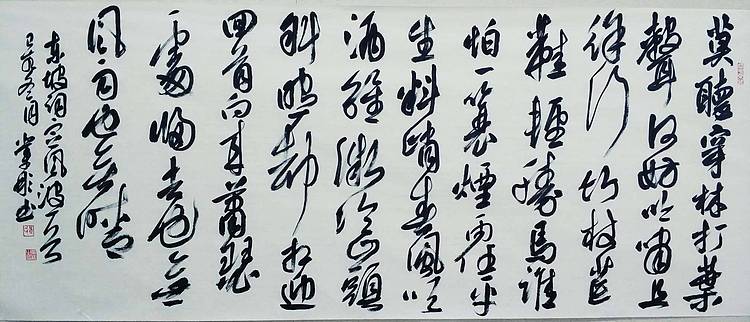 莫聽穿林打葉
聲何妨吟嘯且
徐行竹杖芒
鞋輕勝馬誰
怕一蓑煙雨任平
生料峭春風吹
酒醒微冷山頭
斜照却相迎
回首向來蕭瑟
處歸去也無
風雨也無晴
东坡词定风波一首
己亥冬月书